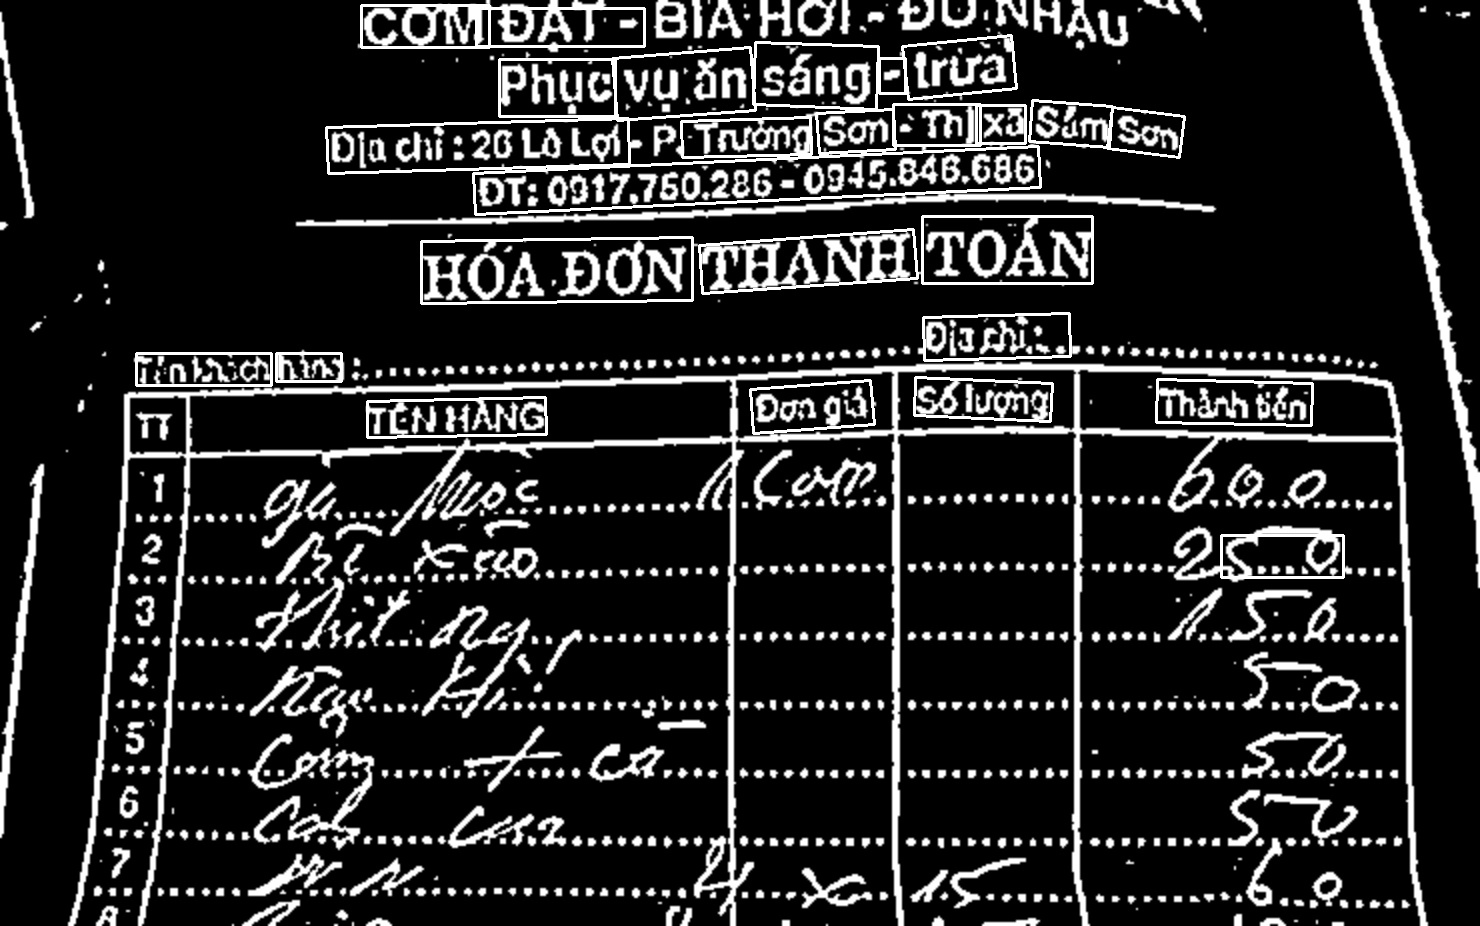 CƠM ĐẶT - BIA HƠI - ĐỒ NHẬU
Phục vụ ăn sáng - trưa
Địa chỉ : 26 Lê Lợi - P. Trường Sơn - Thị xã Sầm Sơn
ĐT: 0917.750.286 - 0945.846.686
HÓA ĐƠN THANH TOÁN
Địa chỉ :
Tên khách hàng :
TT TÊN HÀNG Đơn giá Số lượng Thành tiền
1 gà 1 Com 600
2 Bí xào 250
3 150
4 50
5 + cà 50
6 Canh cua 50
7 4 x 15 60
8